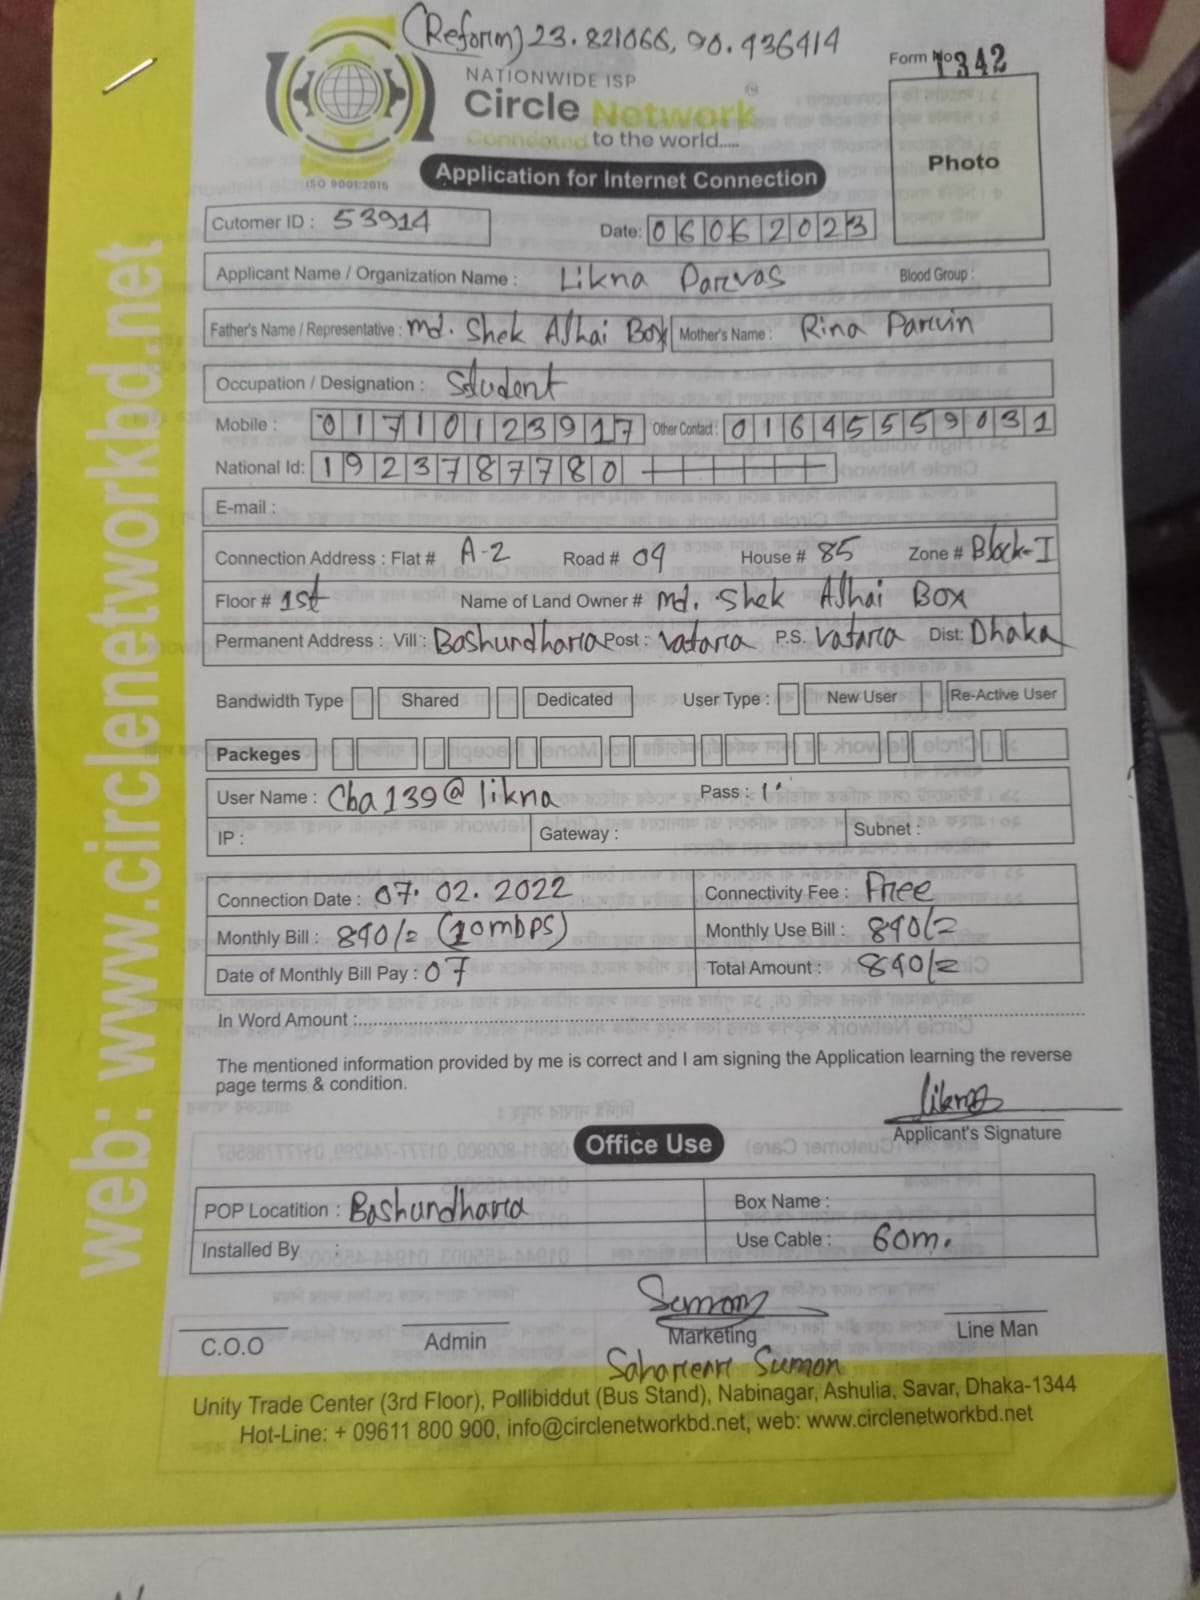 (Reform) 23.821066, 90.436414
Form No 1342
NATIONWIDE ISP
Circle Network
Conndoted to the world.....
ISO 9001:2015
Application for Internet Connection
Photo
Cutomer ID : 53914
Date: 06062023
Applicant Name / Organization Name : Likna Parvas Blood Group :
Father's Name / Representative : md. Shek Alhai Box Mother's Name : Rina Parvin
Occupation / Designation : Student
Mobile : 01710123917 Other Contact : 01645559031
National Id: 1923787780
E-mail :
Connection Address : Flat # A-2 Road # 09 House # 85 Zone # Block-I
Floor # 1st Name of Land Owner # md. Shek Alhai Box
Permanent Address : Vill : Bashundhara Post : Vatara P.S. Vatara Dist: Dhaka
Bandwidth Type Shared Dedicated User Type : New User Re-Active User
Packeges
User Name : Cba139@likna Pass : 1"
IP : Gateway : Subnet :
Connection Date : 07.02.2022 Connectivity Fee : Free
Monthly Bill : 840/= (10mbps) Monthly Use Bill : 840/=
Date of Monthly Bill Pay : 07 Total Amount : 840/=
In Word Amount :
The mentioned information provided by me is correct and I am signing the Application learning the reverse
page terms & condition.
likna
Applicant's Signature
Office Use
POP Locatition : Bashundhara Box Name :
Installed By : Use Cable : 60m.
Sumon
C.O.O Admin Marketing Line Man
Sumon
Unity Trade Center (3rd Floor), Pollibiddut (Bus Stand), Nabinagar, Ashulia, Savar, Dhaka-1344
Hot-Line: + 09611 800 900, info@circlenetworkbd.net, web: www.circlenetworkbd.net
web: www.circlenetworkbd.net